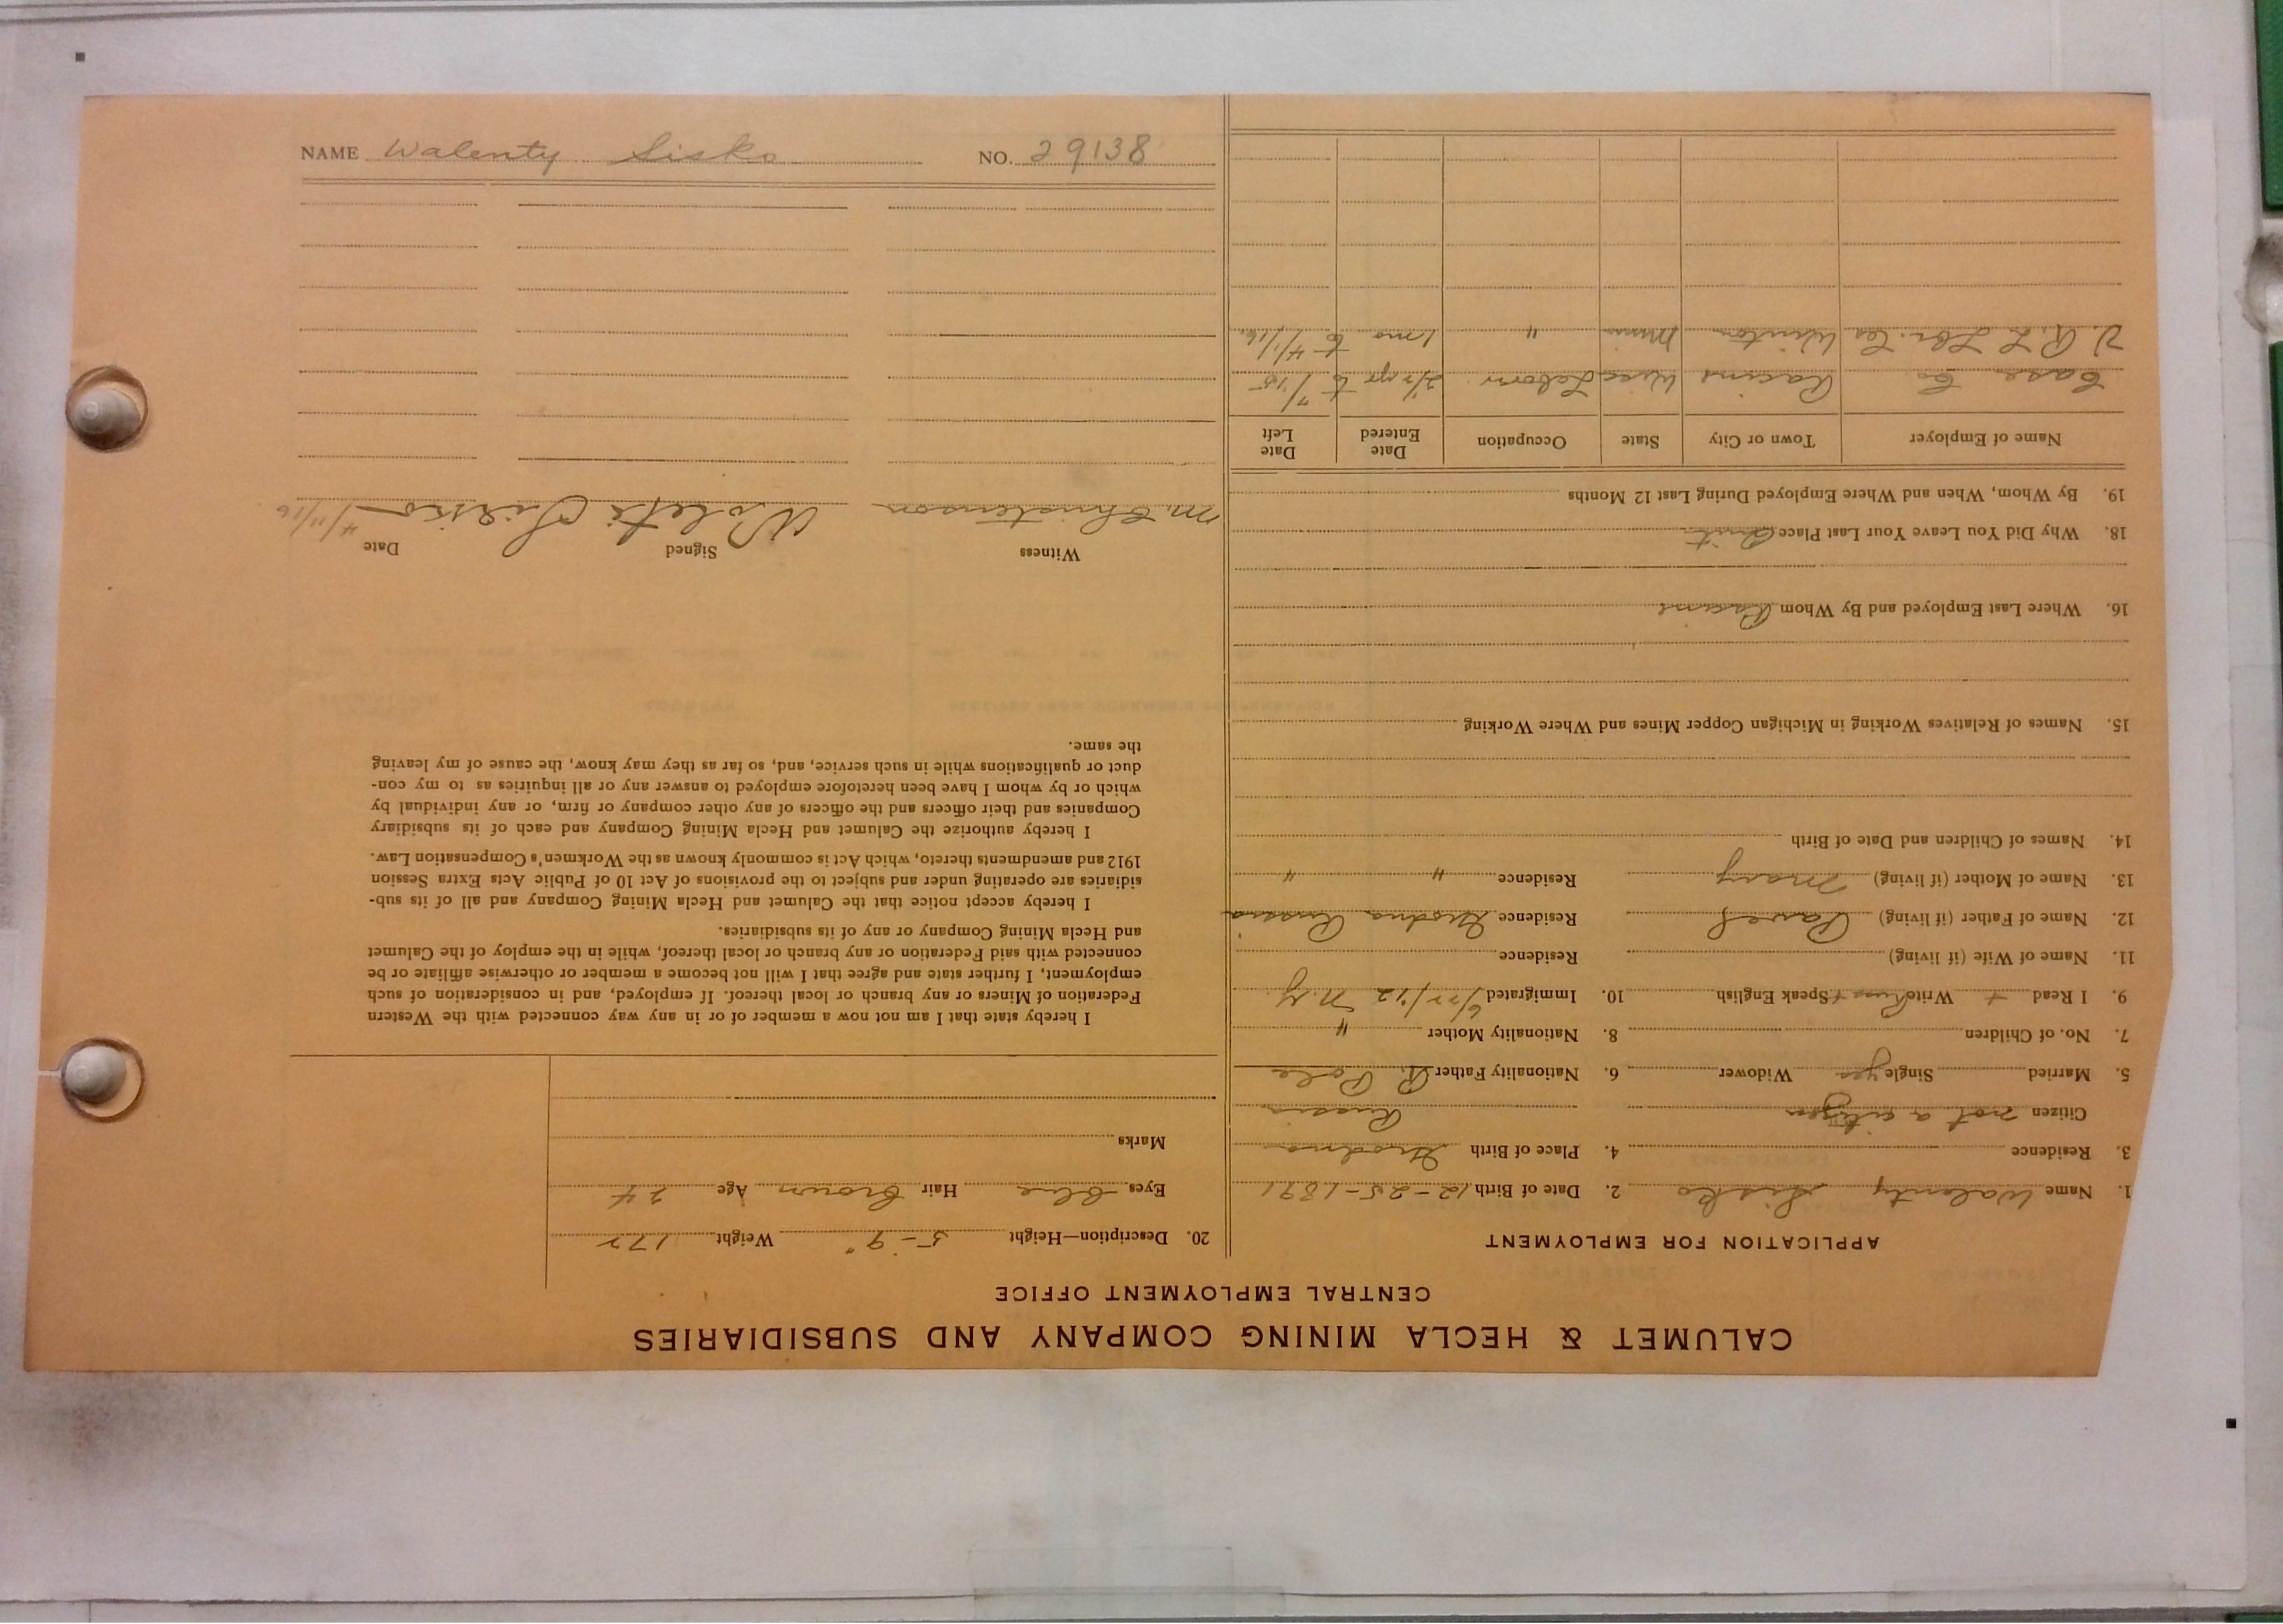 NAME Walenty Sisko NO. 29138
CALUMET & HECLA MINING COMPANY AND SUBSIDIARIES
CENTRAL EMPLOYMENT OFFICE
APPLICATION FOR EMPLOYMENT
1. Name Walenty Sisko 2. Date of Birth 12-25-1891
3. Residence 4. Place of Birth Grodno
Citizen not a citizen Russia
5. Married Single yes Widower 6. Nationality Father R. Pole
7. No. of Children 8. Nationality Mother "
9. I Read + Write Russ + Speak English 10. Immigrated 6/22/12 N.Y.
11. Name of Wife (if living) Residence
12. Name of Father (if living) Pavel Residence Grodna Russia
13. Name of Mother (if living) Mary Residence " "
14. Names of Children and Date of Birth
15. Names of Relatives Working in Michigan Copper Mines and Where Working
16. Where Last Employed and By Whom Racine
18. Why Did You Leave Your Last Place Quit
19. By Whom, When and Where Employed During Last 12 Months
Name of Employer Town or City State Occupation Date Entered Date Left
Case Co. Racine Wisc Labor 2 1/2 yr to 7/15
V. R. L Lbr. Co Winton Minn " 1 mo to 4/1/16
20. Description—Height 5-9" Weight 172
Eyes Blue Hair Brown Age 24
Marks
I hereby state that I am not now a member of or in any way connected with the Western
Federation of Miners or any branch or local thereof. If employed, and in consideration of such
employment, I further state and agree that I will not become a member or otherwise affiliate or be
connected with said Federation or any branch or local thereof, while in the employ of the Calumet
and Hecla Mining Company or any of its subsidiaries.
I hereby accept notice that the Calumet and Hecla Mining Company and all of its sub-
sidiaries are operating under and subject to the provisions of Act 10 of Public Acts Extra Session
1912 and amendments thereto, which Act is commonly known as the Workmen's Compensation Law.
I hereby authorize the Calumet and Hecla Mining Company and each of its subsidiary
Companies and their officers and the officers of any other company or firm, or any individual by
which or by whom I have been heretofore employed to answer any or all inquiries as to my con-
duct or qualifications while in such service, and, so far as they may know, the cause of my leaving
the same.
Witness Signed Date
M. Christenson 4/11/16